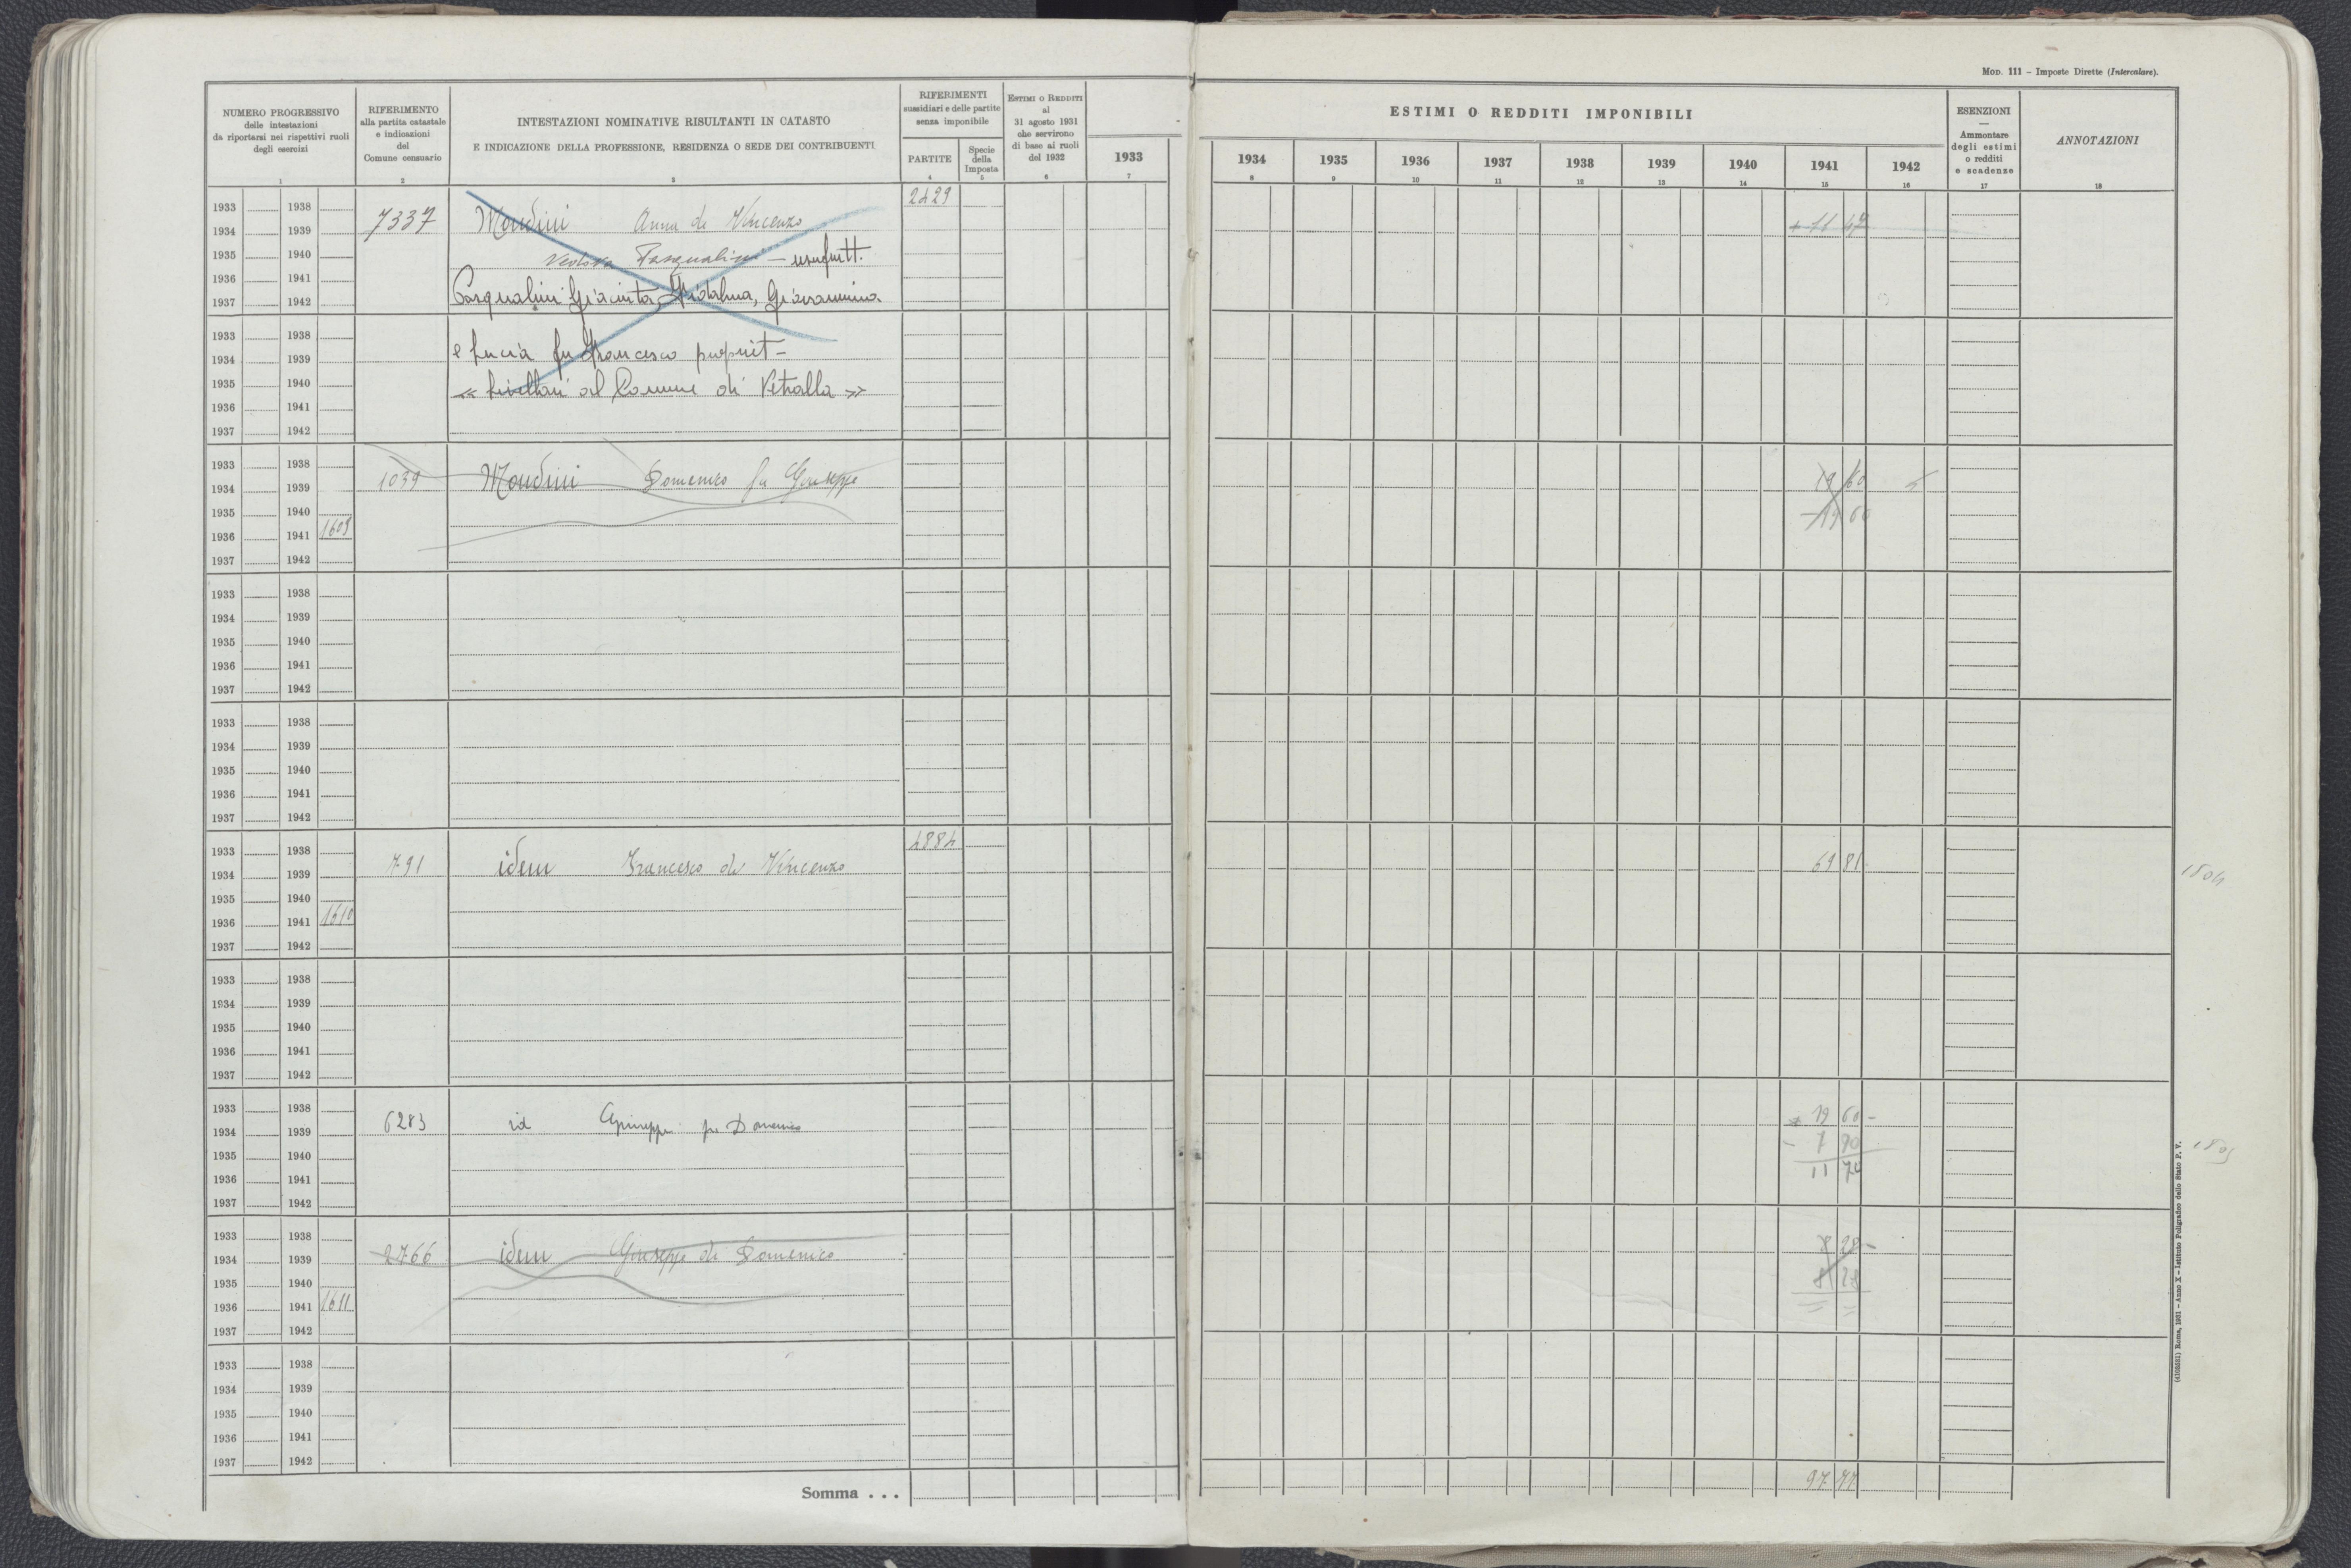 MOD. 111 – Imposte Dirette (Intercalare).
NUMERO PROGRESSIVO
delle intestazioni
da riportarsi nei rispettivi ruoli
degli esercizi
1
RIFERIMENTO
alla partita catastale
e indicazioni
del
Comune censuario
2
INTESTAZIONI NOMINATIVE RISULTANTI IN CATASTO
E INDICAZIONE DELLA PROFESSIONE, RESIDENZA O SEDE DEI CONTRIBUENTI
3
RIFERIMENTI
sussidiari e delle partite
senza imponibile
PARTITE
4
Specie
della
Imposta
5
ESTIMI O REDDITI
al
31 agosto 1931
che servirono
di base ai ruoli
del 1932
6
ESTIMI O REDDITI IMPONIBILI
1933 1934 1935 1936 1937 1938 1939 1940 1941 1942
7 8 9 10 11 12 13 14 15 16
ESENZIONI
—
Ammontare
degli estimi
o redditi
e scadenze
17
ANNOTAZIONI
18
1933 1938 2429
1934 1939 7337 Mondini Anna di Vincenzo
1935 1940 Vedova Pasqualini – usufrutt.
1936 1941
1937 1942 Pasqualini Giacinta, Giovannina
1933 1938
1934 1939 e Lucia fu Francesco propriet–
1935 1940 « livellari al Comune di Vetralla »
1936 1941
1937 1942
1933 1938
1934 1939 1039 Mondini Domenico fu Giuseppe 19 60
1935 1940 – 19 60
1936 1941 1609
1937 1942
1933 1938
1934 1939
1935 1940
1936 1941
1937 1942
1933 1938
1934 1939
1935 1940
1936 1941
1937 1942
1933 1938 4884
1934 1939 791 idem Francesco di Vincenzo 69 81 1804
1935 1940
1936 1941 1610
1937 1942
1933 1938
1934 1939
1935 1940
1936 1941
1937 1942
1933 1938 + 19 60 –
1934 1939 6283 id Giuseppe fu Domenico – 7 90
1935 1940 11 70 1805
1936 1941
1937 1942
1933 1938
1934 1939 2766 idem Giuseppe di Domenico 8 28 –
1935 1940 8 28
1936 1941 1611 = =
1937 1942
1933 1938
1934 1939
1935 1940
1936 1941
1937 1942
Somma . . .
(4105531) Roma, 1931 – Anno X – Istituto Poligrafico dello Stato P. V.